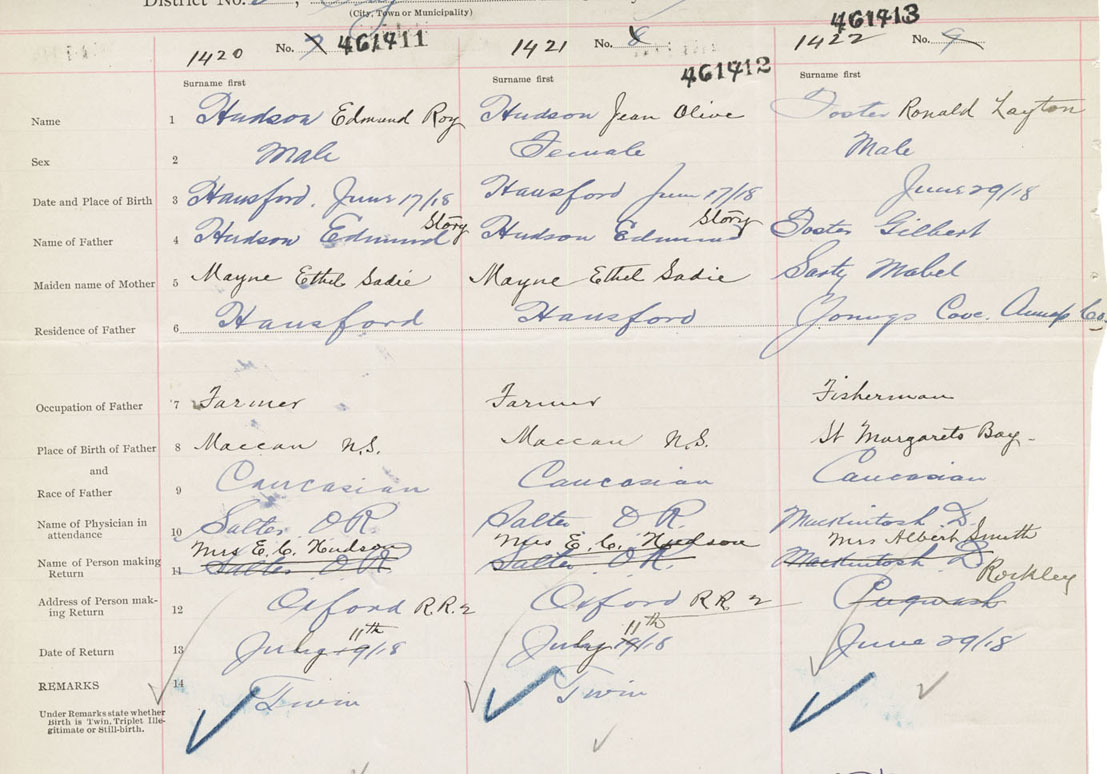 District No.
(City, Town or Municipality)
461411 461412 461413
1420 No. 7 1421 No. 8 1422 No. 9
Surname first Surname first Surname first
Name 1 Hudson Edmund Roy Hudson Jean Olive Foster Ronald Layton
Sex 2 Male Female Male
Date and Place of Birth 3 Hansford. June 17/18 Hansford June 17/18 June 29/18
Name of Father 4 Hudson Edmund Story Hudson Edmund Story Foster Gilbert
Maiden name of Mother 5 Mayne Ethel Sadie Mayne Ethel Sadie Sarty Mabel
Residence of Father 6 Hansford Hansford Youngs Cove. Annap Co.
Occupation of Father 7 Farmer Farmer Fisherman
Place of Birth of Father 8 Maccan N.S. Maccan N.S. St Margarets Bay.
and
Race of Father 9 Caucasian Caucasian Caucasian
Name of Physician in attendance 10 Salter. O R. Salter. O R. Mackintosh D.
Name of Person making Return 11 Mrs E. C. Hudson Salter. O R. Mrs E. C. Hudson Salter. O R. Mrs Albert Smith Mackintosh D
Address of Person making Return 12 Oxford R.R. 2 Oxford R.R. 2 Rockley Pugwash
Date of Return 13 July 11th 9/18 July 11th 9/18 June 29/18
REMARKS 14 Twin Twin
Under Remarks state whether
Birth is Twin, Triplet Ille-
gitimate or Still-birth.